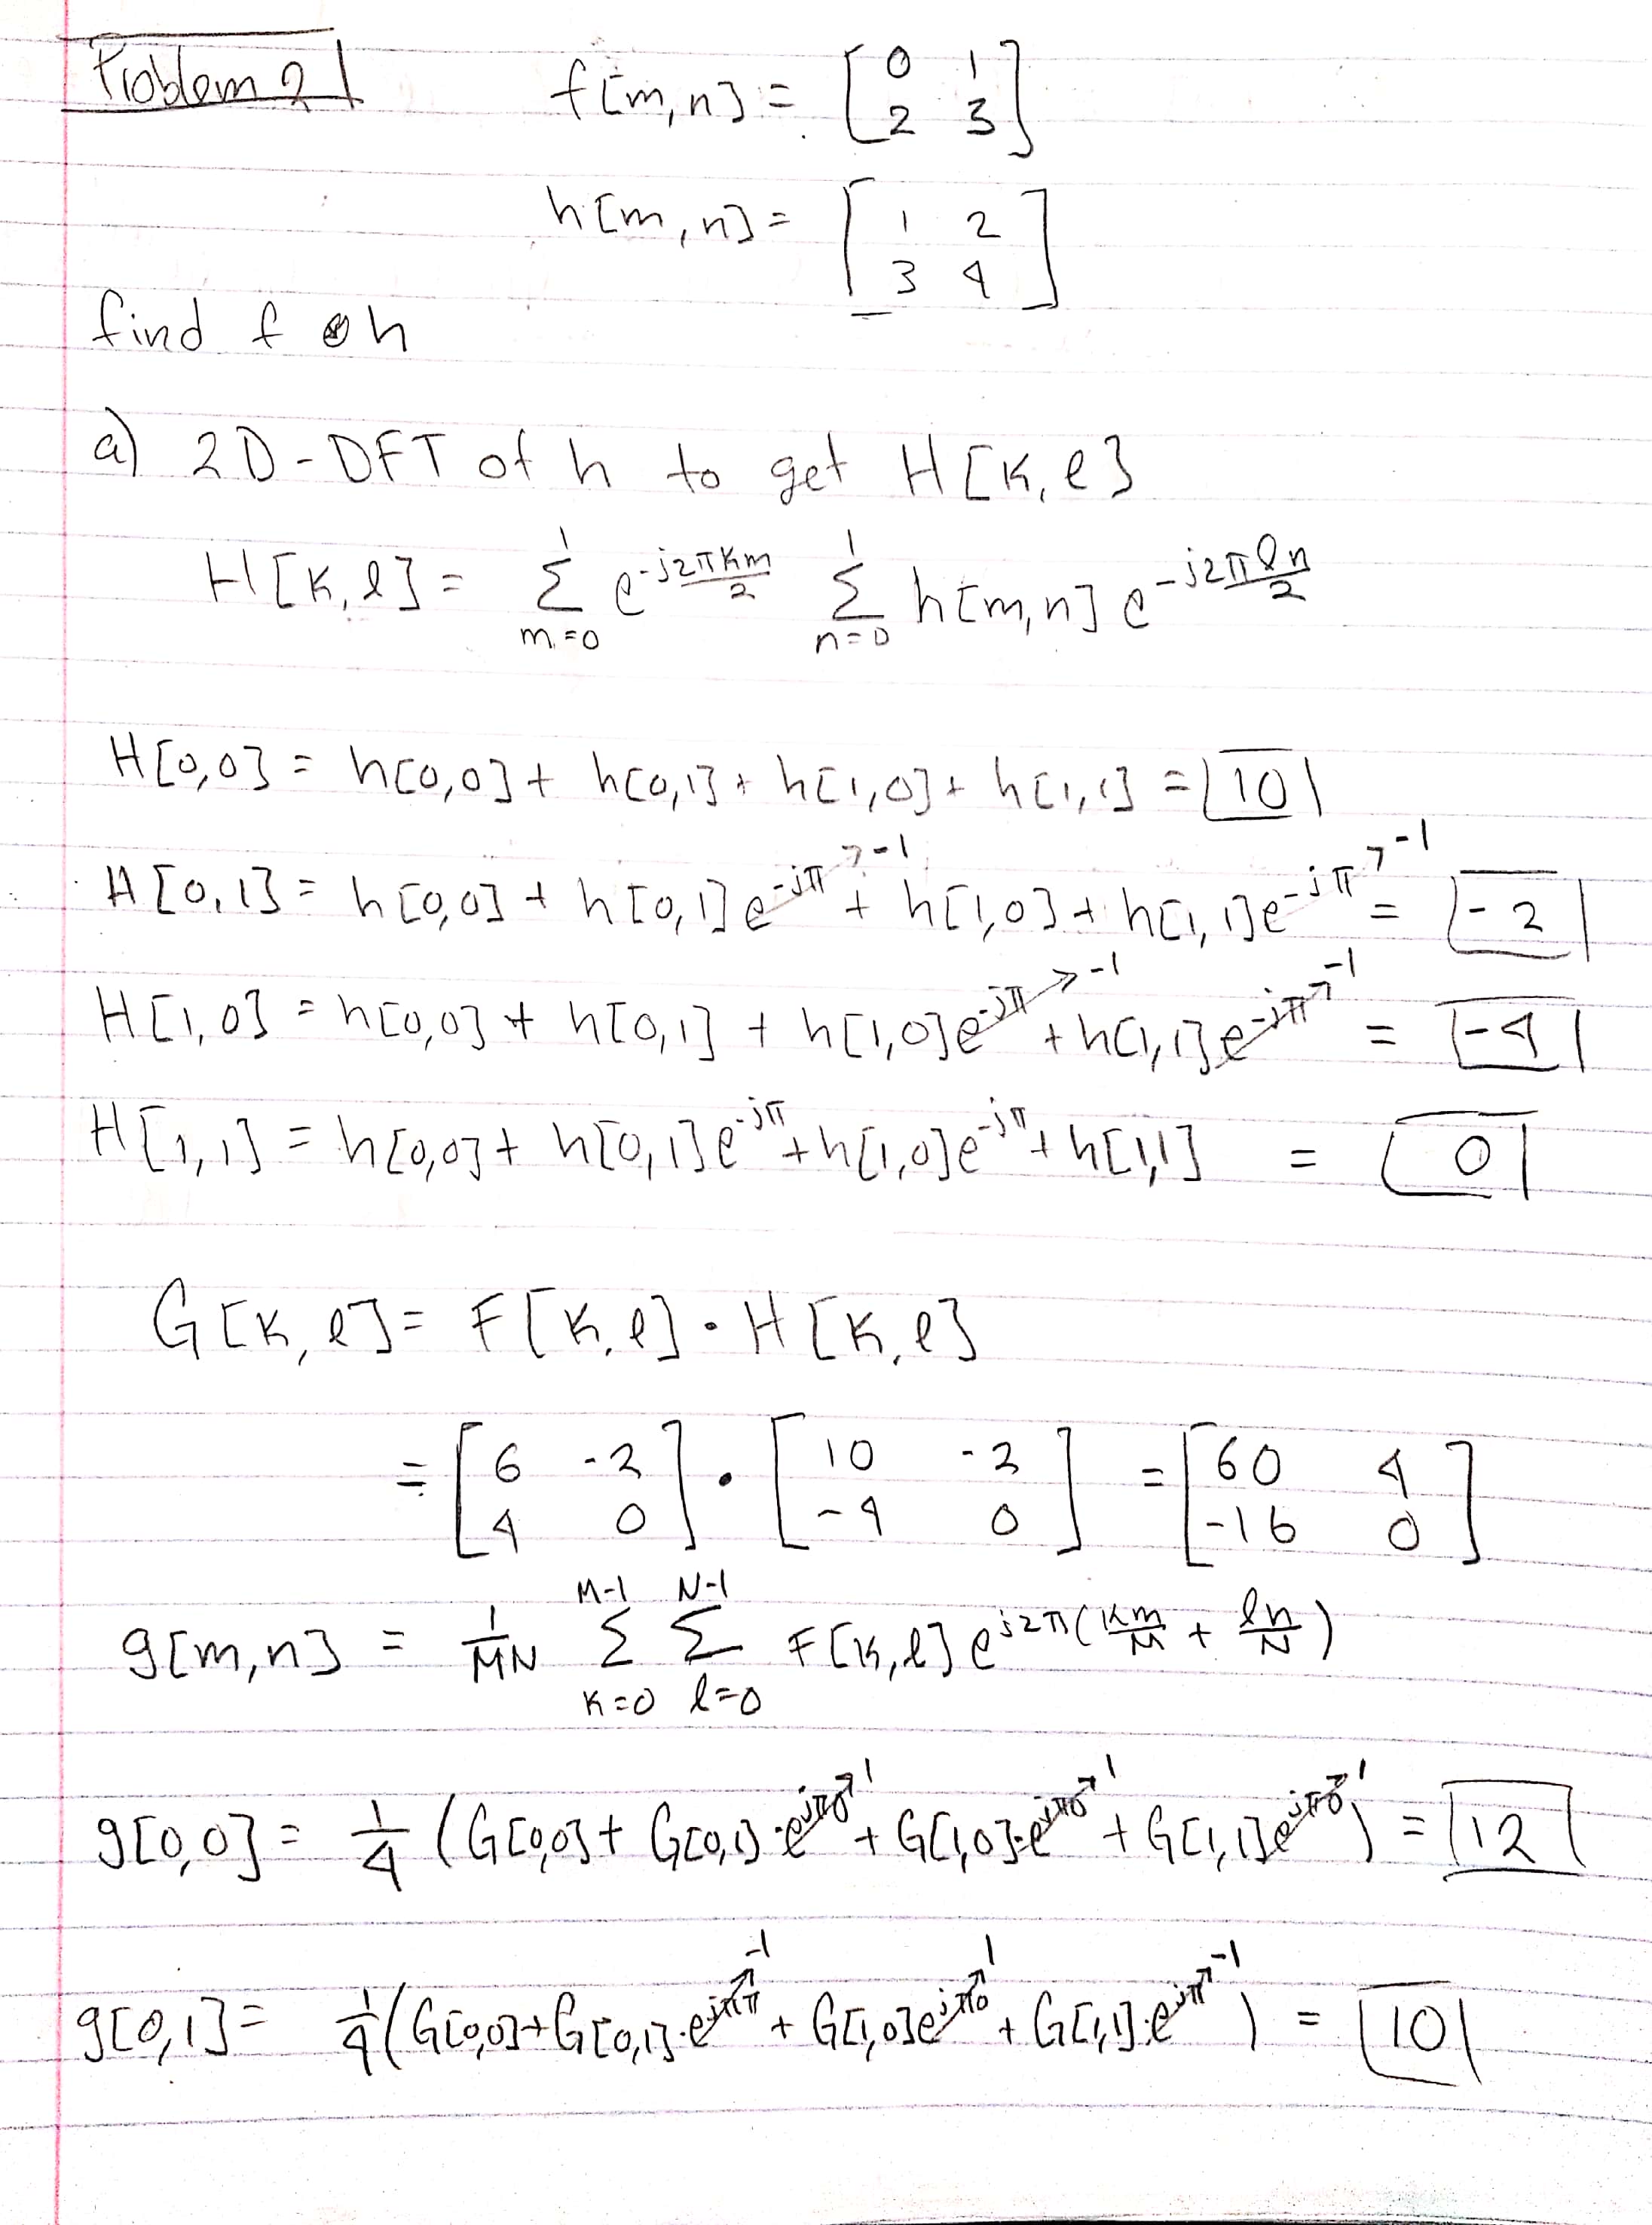 Problem 2
f[m,n] = [0 1
2 3]
h[m,n] = [1 2
3 4]
find f ⊗ h
a) 2D-DFT of h to get H[k,l]
H[k,l] = Σ_{m=0}^{1} e^{-j2πkm/2} Σ_{n=0}^{1} h[m,n] e^{-j2πln/2}
H[0,0] = h[0,0] + h[0,1] + h[1,0] + h[1,1] = 10
H[0,1] = h[0,0] + h[0,1]e^{-jπ}→-1 + h[1,0] + h[1,1]e^{-jπ}→-1 = -2
H[1,0] = h[0,0] + h[0,1] + h[1,0]e^{-jπ}→-1 + h[1,1]e^{-jπ}→-1 = -4
H[1,1] = h[0,0] + h[0,1]e^{-jπ} + h[1,0]e^{-jπ} + h[1,1] = 0
G[k,l] = F[k,l] · H[k,l]
= [6 -2
4 0] · [10 -2
-4 0] = [60 4
-16 0]
g[m,n] = 1/MN Σ_{k=0}^{M-1} Σ_{l=0}^{N-1} F[k,l] e^{j2π(km/M + ln/N)}
g[0,0] = 1/4 (G[0,0] + G[0,1]·e^{jπ0}→1 + G[1,0]·e^{jπ0}→1 + G[1,1]e^{jπ0}→1) = 12
g[0,1] = 1/4 (G[0,0] + G[0,1]·e^{jπ}→-1 + G[1,0]e^{jπ0}→1 + G[1,1]·e^{jπ}→-1) = 10